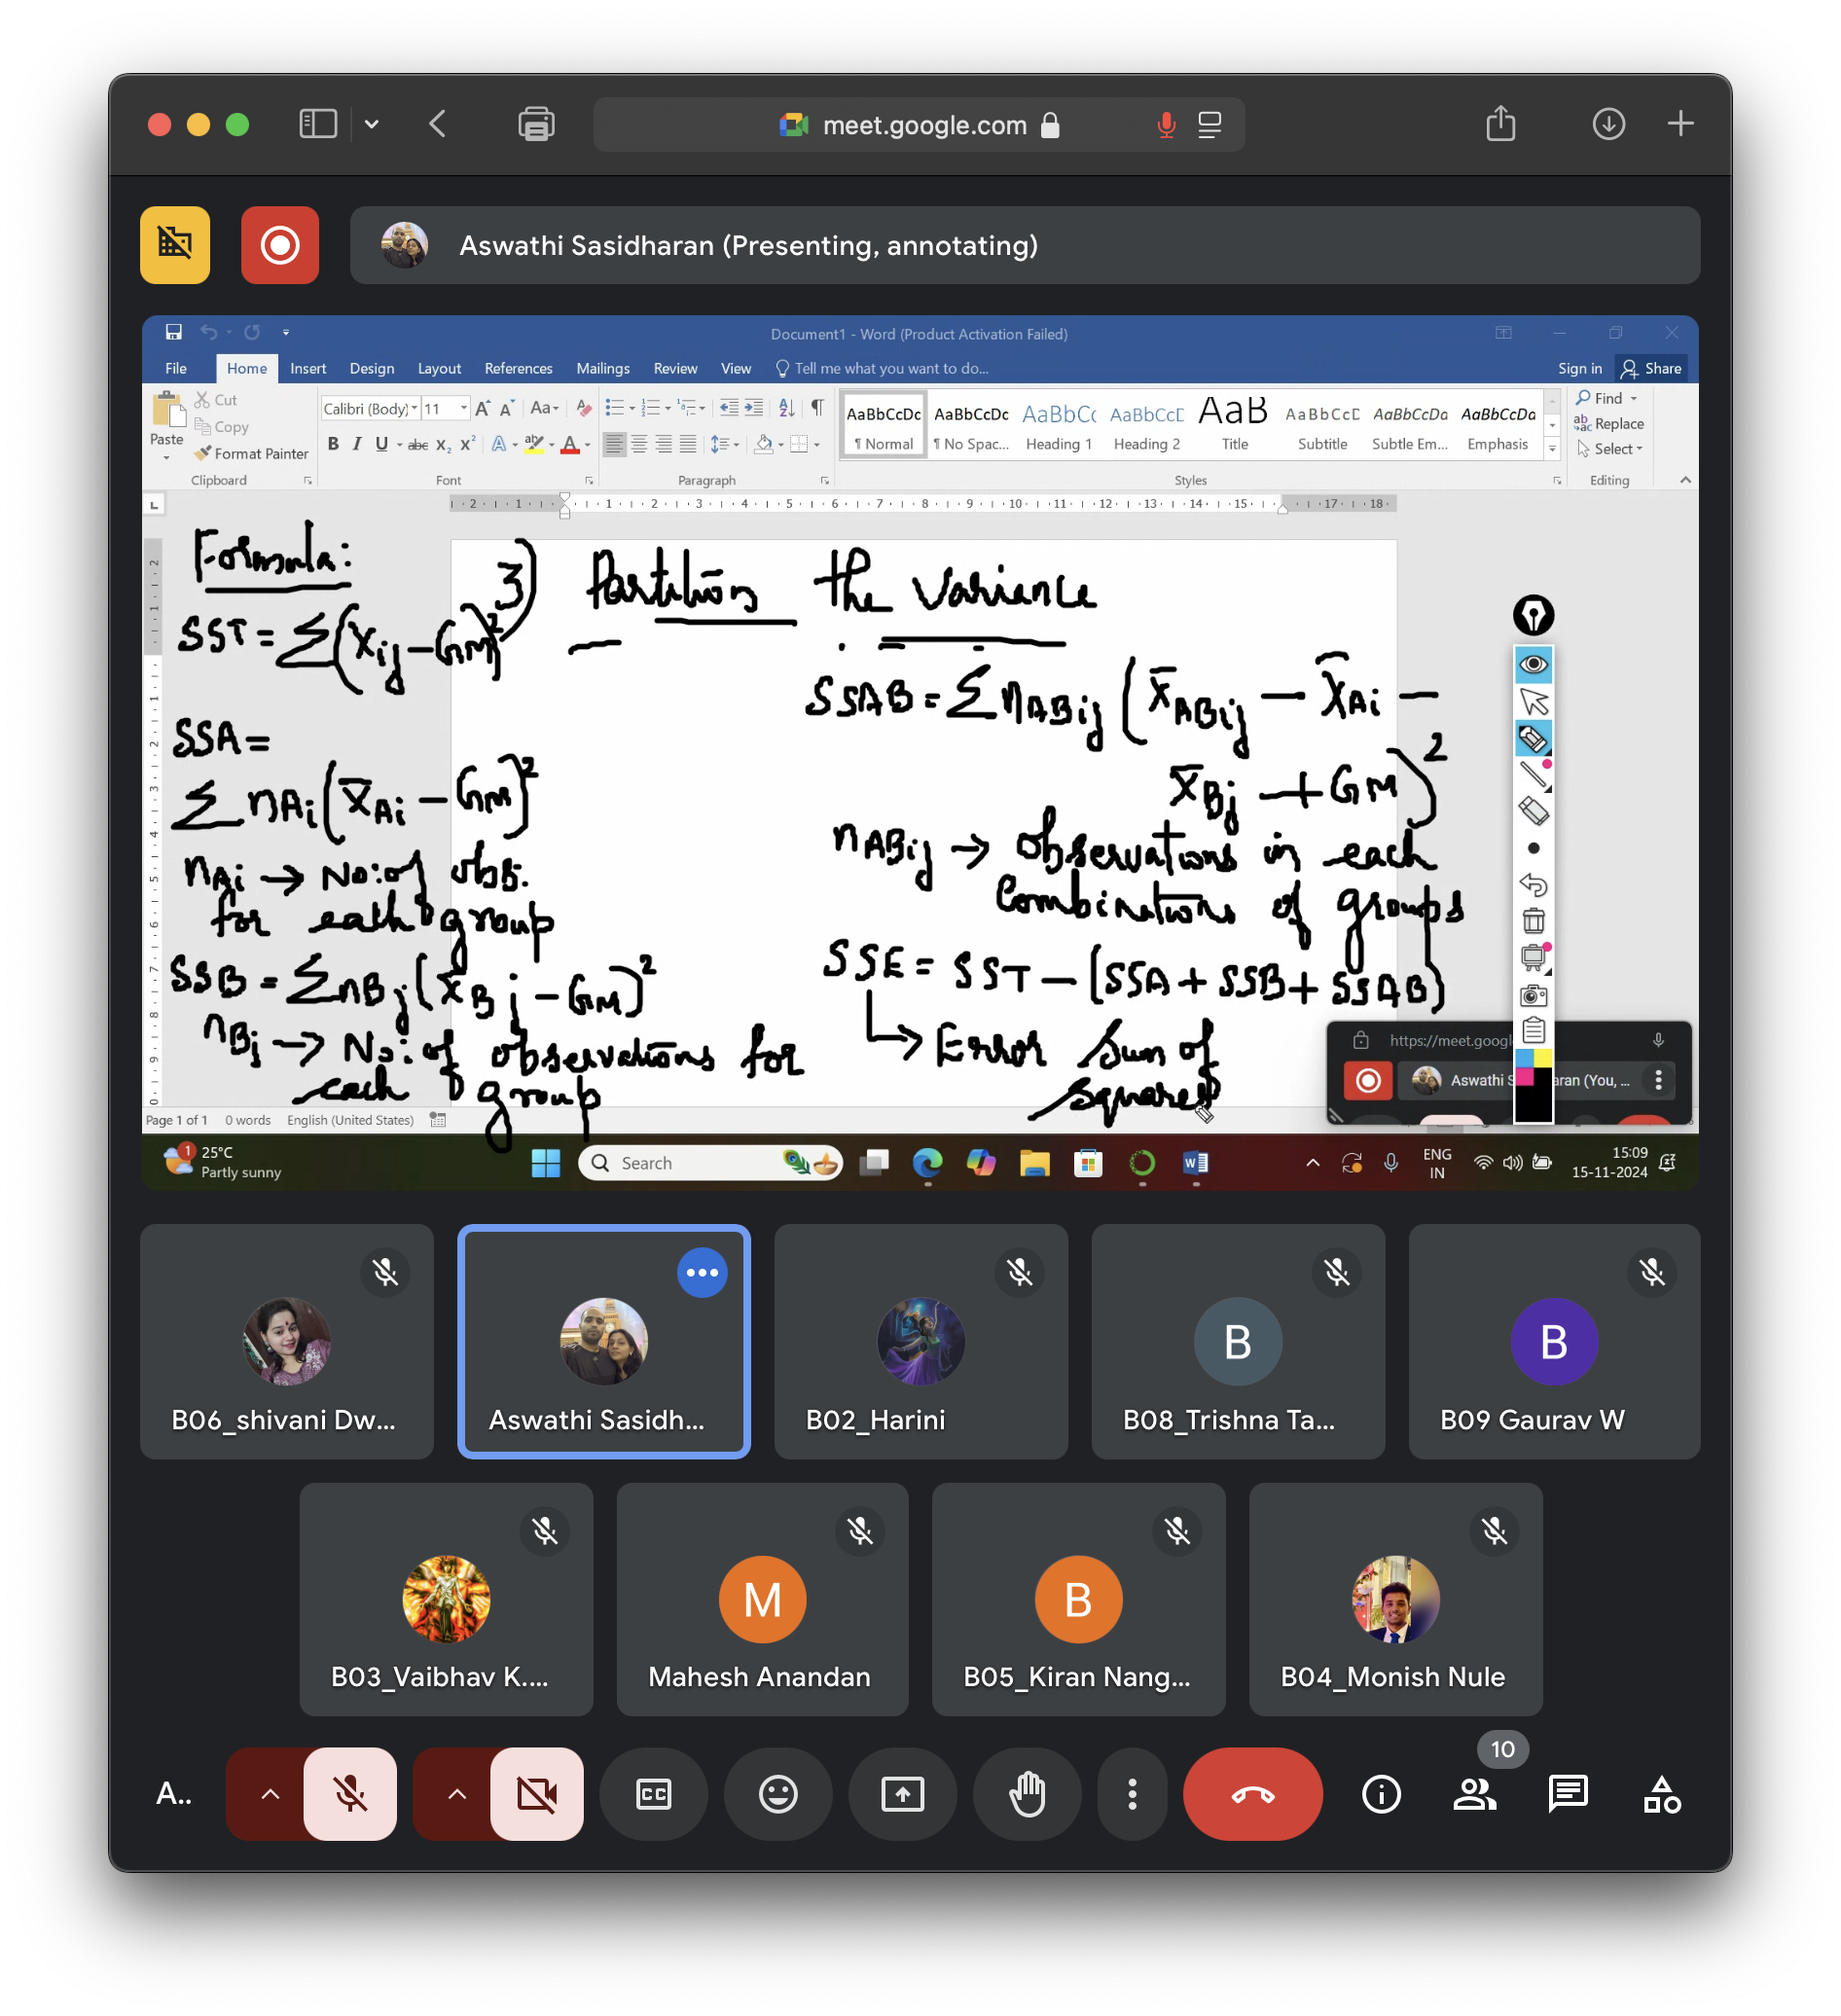 meet.google.com
Aswathi Sasidharan (Presenting, annotating)
Document1 - Word (Product Activation Failed)
File Home Insert Design Layout References Mailings Review View Tell me what you want to do... Sign in Share
Paste Cut Copy Format Painter
Calibri (Body) 11 Aa
B I U abc X₂ X² A ab A
AaBbCcDc AaBbCcDc AaBbCc AaBbCcE AaB AaBbCcD AaBbCcDa AaBbCcDa
¶ Normal ¶ No Spac... Heading 1 Heading 2 Title Subtitle Subtle Em... Emphasis
Find
Replace
Select
Clipboard Font Paragraph Styles Editing
2 1 1 2 3 4 5 6 7 8 9 10 11 12 13 14 15 17 18
Formula:
SST = Σ(Xij - GM)²
SSA =
Σ nAi (X̄Ai - GM)²
nAi → No: of obs.
for each group
SSB = Σ nBj (X̄Bj - GM)²
nBj → No: of observations for
each B group
3) Partition the Variance
SSAB = Σ nABij (X̄ABij - X̄Ai -
X̄Bj + GM)²
nABij → observations in each
Combinations of groups
SSE = SST - [SSA + SSB + SSAB]
↳ Error Sum of
squares
https://meet.googl
Aswathi S aran (You, ...
Page 1 of 1 0 words English (United States)
1
25°C
Partly sunny
Search
ENG
IN
15:09
15-11-2024
B06_shivani Dw...
Aswathi Sasidh...
B02_Harini
B
B08_Trishna Ta...
B
B09 Gaurav W
B03_Vaibhav K....
M
Mahesh Anandan
B
B05_Kiran Nang...
B04_Monish Nule
A..
CC
10